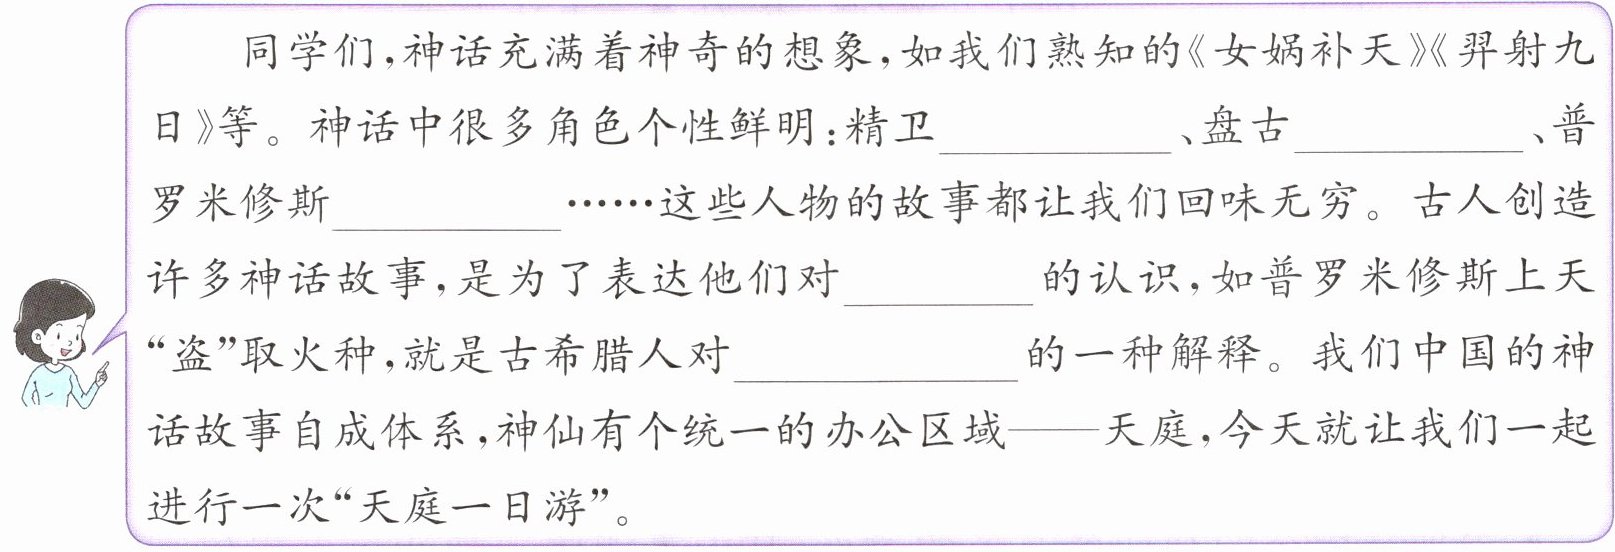 同学们,神话充满着神奇的想象,如我们熟知的《女娲补天》《羿射九
日》等。神话中很多角色个性鲜明:精卫____________、盘古____________、普
罗米修斯____________……这些人物的故事都让我们回味无穷。古人创造
许多神话故事,是为了表达他们对__________的认识,如普罗米修斯上天
“盗”取火种,就是古希腊人对_______________的一种解释。我们中国的神
话故事自成体系,神仙有个统一的办公区域——天庭,今天就让我们一起
进行一次“天庭一日游”。